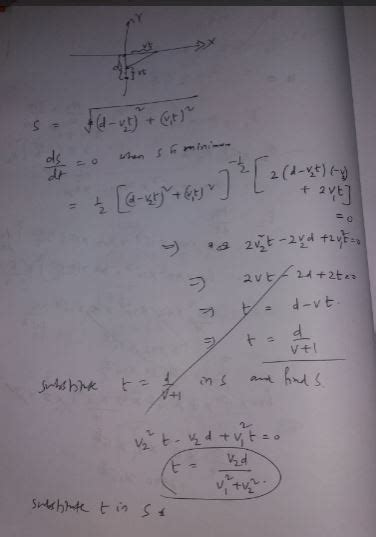 Y
X
v₁t
d
v₂t
S = √((d-v₂t)² + (v₁t)²)
ds/dt = 0 when s is minimum
= 1/2 [(d-v₂t)² + (v₁t)²]^(-1/2) [2(d-v₂t)(-v₂) + 2v₁²t] = 0
⇒ 2v₂²t - 2v₂d + 2v₁²t = 0
⇒ 2vt - 2d + 2t = 0
⇒ t = d - vt.
⇒ t = d/(v+1)
substitute t = d/(v+1) in s and find s.
v₂² t - v₂d + v₁²t = 0
t = v₂d/(v₁² + v₂²).
substitute t in S